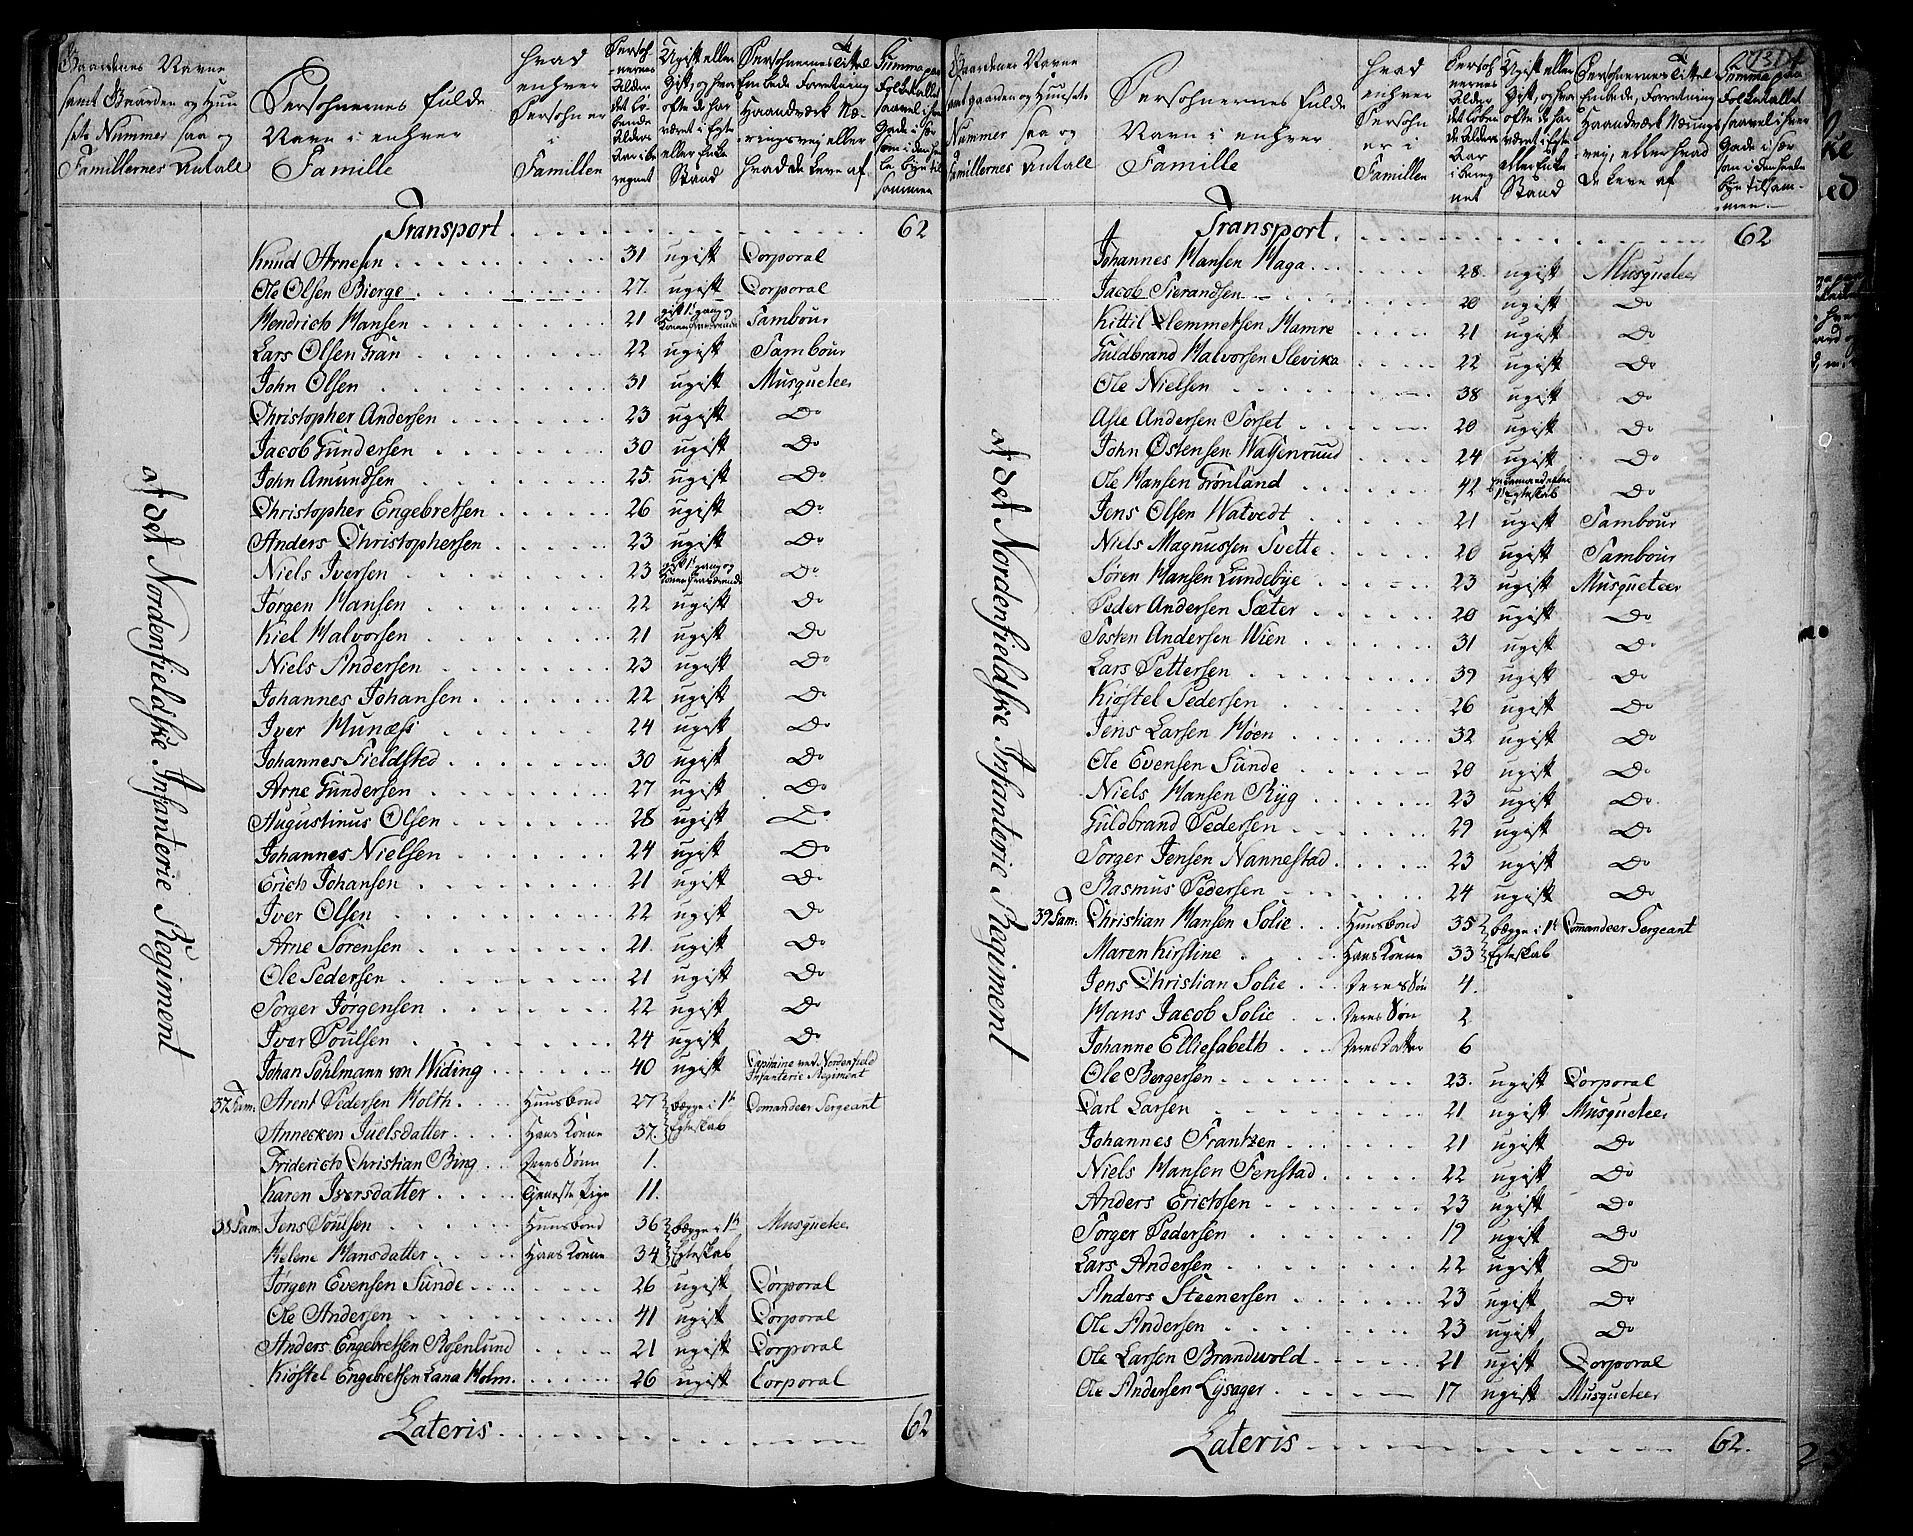 Gaardenes Navne
samt Gaarden og Huu
sets Nummer saa og
Famillernes Antall
Persohnernes fulde
Navn i enhver
Famille
Hvad
enhver
Persohn er
i
Famillen
Persoh-
nernes
Alder
det Lø-
bende
Alders
Aar ibe
regnet
Ugift eller
Gift, og hvor
ofte de har
været i Egte
eller Enke
Stand
Persohnernes Titel
Embede Forretning
Haandværk Næ-
ringsvej eller
hvad de leve af
Summa paa
Folketallet
saavel i hver
Gade i sær
som i den hee
le bye til
sammen
Transport 62
af det Nordenfieldske Infanterie Regiment
Knud Arnesen 31 ugift Corporal
Ole Olsen Bierge 27. ugift Corporal
Hendrich Hansen 21 gift 1. gang og Konen fraværende Tambour
Lars Olsen Gran 22 ugift Tambour
John Olsen 31 ugift Musqueteer
Christopher Andersen 23 ugift Do
Jacob Gundersen 30 ugift Do
John Amundsen 25. ugift Do
Christopher Engebretsen 26 ugift Do
Anders Christophersen 23 ugift Do
Niels Iversen 23 gift 1. gang og Konen fraværende Do
Jørgen Hansen 22 ugift Do
Kiel Halvorsen 21 ugift Do
Niels Andersen 23 ugift Do
Johannes Johansen 22 ugift Do
Iver Munæss 24 ugift Do
Johannes Fieldsted 30 ugift Do
Arne Gundersen 27 ugift Do
Augustinus Olsen 28 ugift Do
Johannes Nielsen 24 ugift Do
Erich Johansen 21 ugift Do
Iver Olsen 22 ugift Do
Arne Sørensen 21. ugift Do
Ole Pedersen 21 ugift Do
Torger Jørgensen 22 ugift Do
Iver Poulsen 24 ugift Do
Johan Pohlmann von Widing 40 ugift Capitaine ved Nordenfield
Infanterie Regiment
37 Fam: Arent Pedersen Holth Huusbond 27 begge i 1te Comandeer Sergeant
Annecken Juelsdatter Hans Konne 37. Egteskab
Friderich Christian Bing Deres Sønn 1.
Karen Iversdatter Tjeneste Pige 11.
38 Fam: Jens Poulsen Huusbond 36 begge i 1te Musqueteer
Helene Hansdatter Hans Konne 34 Egteskab
Jørgen Evensen Sunde 26 ugift Corporal
Ole Andersen 41 ugift Corporal
Anders Engebretsen Rosenlund 21 ugift Corporal
Kiøstel Engebretsen Lana Holm 26 ugift Corporal
Lateris 62
Gaardenes Navne
samt gaarden og Huusets
Nummer saa og
Famillernes Antall
Persohnernes fulde
Navn i enhver
Famille
Hvad
enhver
Persohn
er i
Famillen
Persoh
nernes
Alder
det løben
de Alders
Aar
i bereg
net
Ugift eller
Gift, og hvor
ofte de har
været i Egte
eller Enke
Stand
Persohnernes Titel
Embede, Forretning
Haandværk Nærings
vej, eller hvad
de leve af
Summa paa
Folketallet
saavel i hver
Gade i sær
som i den heele
bye tilsam-
men.
Transport 62
af det Nordenfieldske Infanterie Regiment
Johannes Hansen Haga 28. ugift Musqueteer
Jacob Sivrandsen 20 ugift Do
Kittil Clemmetsen Hamre 21 ugift Do
Guldbrand Halvorsen Slevika 22 ugift Do
Ole Nielsen 38 ugift Do
Asle Andersen Torset 20 ugift Do
John Østensen Wassenruud 24 ugift Do
Ole Hansen Grønland 42 Enkemand efter 1. Egteskab Do
Jens Olsen Watvedt 21 ugift Tambour
Niels Magnussen Tvette 20 ugift Tambour
Søren Hansen Lundebye 23 ugift Musqueteer
Peder Andersen Sæter 20 ugift Do
Tosten Andersen Wien 31 ugift Do
Lars Pettersen 39 ugift Do
Kiøstel Pedersen 26 ugift Do
Jens Larsen Moen 32 ugift Do
Ole Evensen Sunde 20 ugift Do
Niels Hansen Ryg 23 ugift Do
Guldbrand Pedersen 29 ugift Do
Torger Jensen Nannestad 23 ugift Do
Rasmus Pedersen 24 ugift Do
39 Fam: Christian Hansen Solie Huusbond 35 begge i 1te Commandeer Sergeant
Maren Kirstine Hans Konne 33 Egteskab
Jens Christian Solie Deres Søn 4.
Hans Jacob Solie Deres Søn 2
Johanne Elliesabeth Deres Datter 6
Ole Bergersen 23. ugift Corporal
Carl Larsen 21 ugift Musqueteer
Johannes Frantzen 21 ugift Do
Niels Hansen Fenstad 22 ugift Do
Anders Erichsen 23 ugift Do
Torger Pedersen 19 ugift Do
Lars Andersen 22 ugift Do
Anders Steenersen 23 ugift Do
Ole Andersen 23 ugift Do
Ole Larsen Brandvold 21 ugift Corporal
Ole Andersen Lysager 17 ugift Musqueteer
Lateris 62.